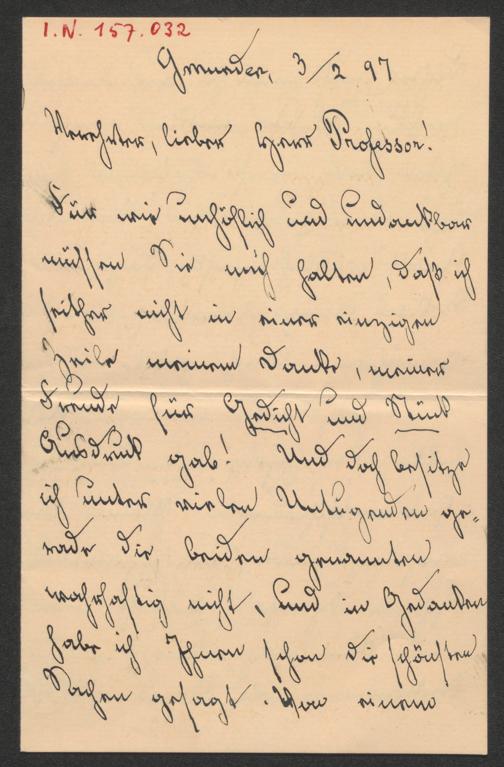 I.N. 157.032
Gmunden, 3/2 97
Verehrter, lieber Herr Professor!
Für wie unhöflich und undankbar
müssen Sie mich halten, daß ich
seither nicht in einer einzigen
Zeile meinem Danke, meiner
Freude für Gedicht und Stück
Ausdruck gab! Und doch besitze
ich unter vielen Untugenden ge-
rade die beiden genannten
wahrhaftig nicht, und in Gedanken
habe ich Ihnen schon die schönsten
Sachen gesagt. Von einem